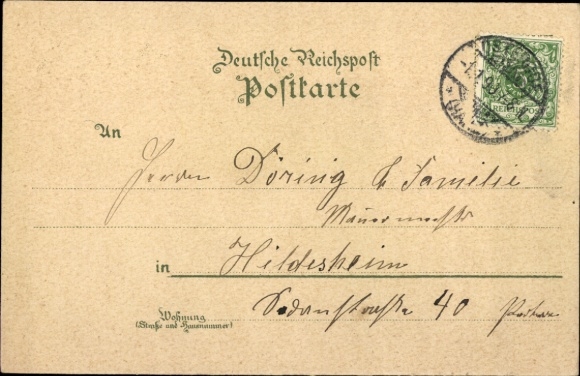 Deutsche Reichspost
Postkarte
An
Herrn Döring & Familie
Mauermeister
in Hildesheim
Sedanstraße 40
Wohnung
(Straße und Hausnummer)
REICHSPOST